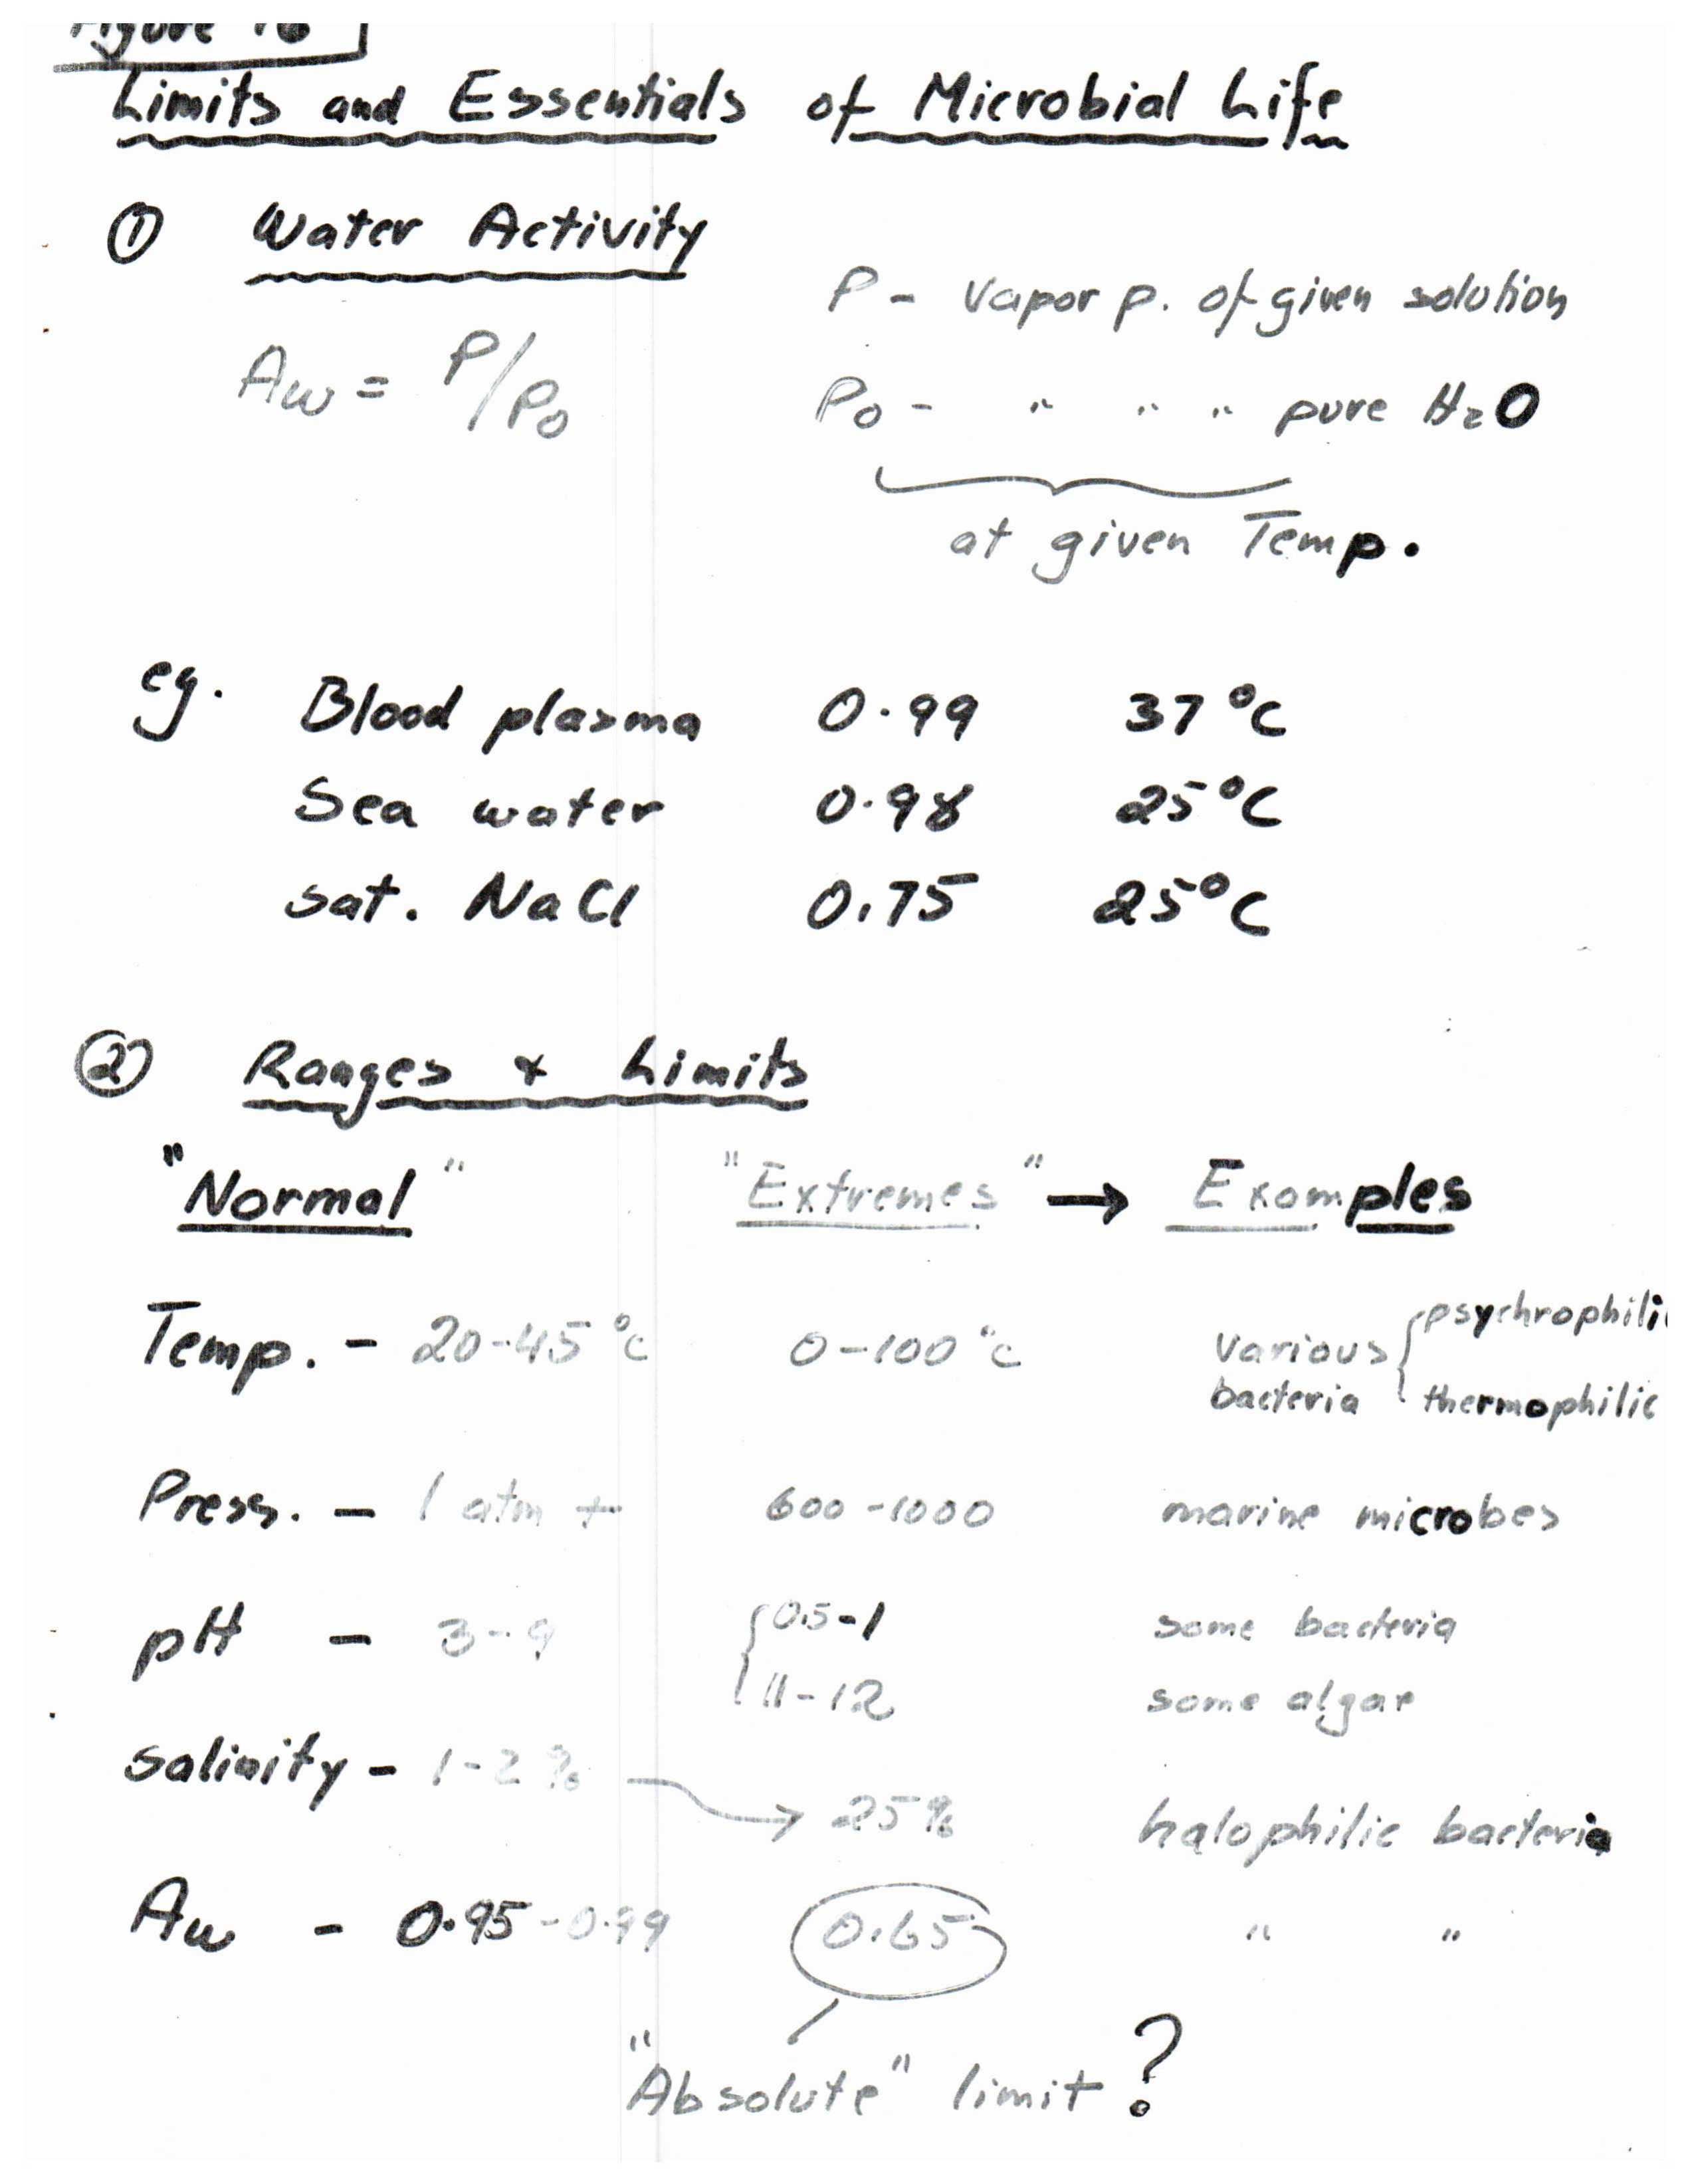 Limits and Essentials of Microbial Life
① Water Activity
P - Vapor p. of given solution
Aw = P/Po
Po - " " " pure H₂O
at given Temp.
eg. Blood plasma 0.99 37°C
Sea water 0.98 25°C
sat. NaCl 0.75 25°C
② Ranges & Limits
"Normal" "Extremes" → Examples
Temp. - 20-45°C 0-100°C various bacteria { psychrophilic
thermophilic
Press. - 1 atm + 600-1000 marine microbes
pH - 3-9 { 0.5-1 some bacteria
11-12 some algae
Salinity - 1-2% → 25% halophilic bacteria
Aw - 0.95-0.99 0.65 " "
"Absolute" limit?